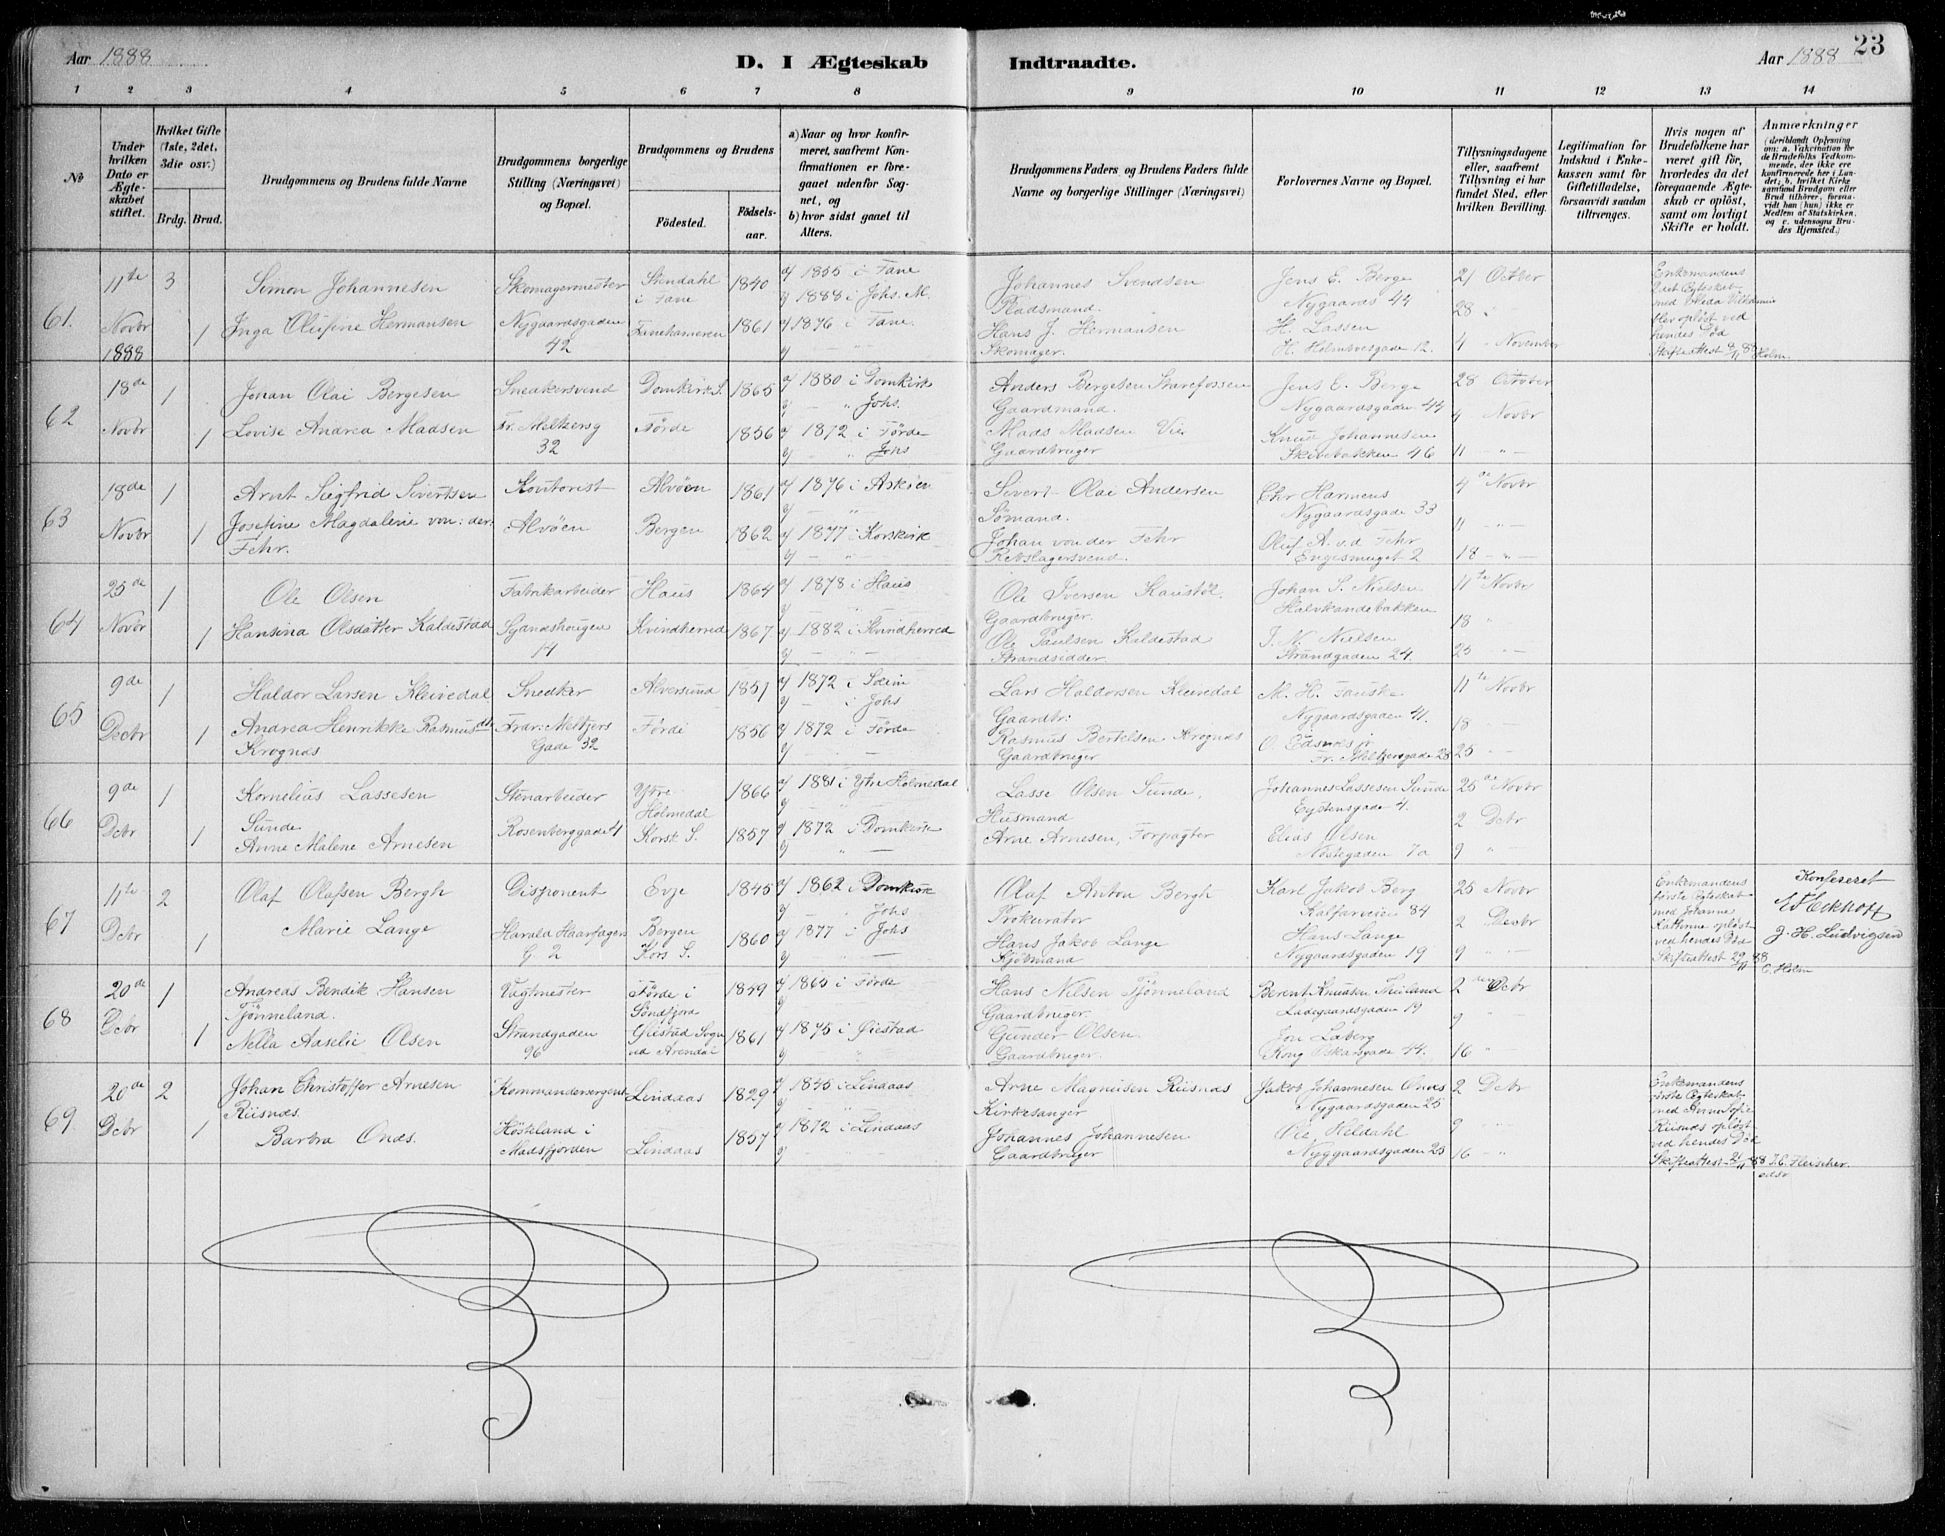 Aar 1888
D. I Ægteskab
Indtraadte.
Aar 1888
23
1 2 3 4 5 6 7 8 9 10 11 12 13 14
No
Under hvilken Dato er Ægteskabet stiftet.
Hvilket Gifte (1ste, 2det, 3die osv.)
Brdg. Brud.
Brudgommens og Brudens fulde Navne
Brudgommens borgerlige Stilling (Næringsvei) og Bopæl.
Brudgommens og Brudens
Födested.
Födselsaar.
a) Naar og hvor konfirmeret, saafremt Konfirmationen er foregaaet udenfor Sognet, og
b) hvor sidst gaaet til Alters.
Brudgommens Faders og Brudens Faders fulde Navne og borgerlige Stillinger (Næringsvei)
Forlovernes Navne og Bopæl.
Tillysningsdagene eller, saafremt Tillysning ei har fundet Sted, efter hvilken Bevilling.
Legitimation for Indskud i Enkekassen samt for Giftetilladelse, forsaavidt saadan tiltrænges.
Hvis nogen af Brudefolkene har været gift för, hvorledes da det foregaaende Ægteskab er oplöst, samt om lovligt Skifte er holdt.
Anmærkninger
(deriblandt Oplysning om: a. Vakcination for de Brudefolks Vedkommende, der ikke ere konfirmerede her i Landet; b. hvilket Kirkesamfund Brudgom efter Brud tilhörer, forsaavidt han (hun) ikke er Medlem af Statskirken, og c. udensogns Brudes Hjemsted.)
61. 11te Novbr 1888 3 1
Simon Johannesen Skomagermester Stendahl i Fane 1840 a) 1855 i Fane b) 1888 i Johs. M.
Inga Olufine Hermansen Nygaardsgaden 42 Fanehameren 1861 a) 1876 i Fane
Johannes Svendsen Pladsmand. Jens E. Berge Nygaards 44 21 October
Hans J. Hermansen Skomager. H. Lassen H. Holmboesgade 12. 28 " 4 November
Enkemandens 2det Ægteskab blev opløst ved hendes Död Holm.
62 18de Novbr 1 1
Johan Olai Bergesen Snedkersvend Domkirk S. 1865 a) 1880 i Domkirk b) — " Johs.
Lovise Andrea Madsen Fr. Meltzersg 32 Förde 1856 a) 1872 i Förde b) " Johs
Anders Bergesen Gaardmand. Jens E. Berge Nygaardsgaden 44 28 October
Mads Madsen Vie Gaardbruger Knud Johannesen Skivebakken 46 4 Novbr 11 — " —
63 18de Novbr 1 1
Arnt Siegfrid Sivertsen Kontorist Alvöen 1861 a) 1876 i Asköen
Josefine Magdalene von: der Fehr. Alvöen Bergen 1862 a) 1877 i Korskirk
Sivert Olai Andersen Sömand. Chr Harmens Nygaardsgade 33 4de Novbr
Johan von der Fehr Rebslagersvend. Oluf A. v. d Fehr Engesmuget 2 11 — " — 18 — " —
64 25de Novbr 1 1
Ole Olsen Fabrikarbeider Haus 1864 a) 1878 i Haus
Hansina Olsdatter Kaldestad 14 Kvindherred 1867 a) 1882 i Kvindherred
Ole Iversen Gaardbruger. Johan S. Nielsen 11te Novbr
Ole Paulsen Kaldestad Strandsidder. J. N. Nielsen Strandgaden 24. 18 " 25 "
65 9de Decbr 1 1
Haldor Larsen Kleivedal Snedker Alversund 1857 a) 1872 i Seim b) — i Johs
Andrea Henrikke Rasmusdtr Krognæs Fredr. Meltzers Gade 32 Förde 1856 a) 1872 i Förde
Lars Haldorsen Kleivedal Gaardbr: M. H. Fauske Nygaardsgaden 41. 11te Novbr
Rasmus Bertelsen Krognæs Gaardbruger Fr. Meltzersgade 28 18 " 25 "
66 9de Dcbr 1 1
Kornelius Lassesen Sunde Stenarbeider Ytre Holmedal 1866 a) 1881 i Ytre Holmedal
Anne Malene Arnesen Rosenberggade 4 Korsk S. 1857 a) 1872 i Domkirke
Lasse Olsen Sunde, Husmand Johannes Lassesen Sunde Eystensgade 4. 25de Novbr
Arne Arnesen, Forpagter Elias Olsen Nöstegaden 7a 2 Dcbr 9 "
67 11te Dcbr 2 1
Olaf Olafsen Bergh Disponent Evje 1845 a) 1862 i Domkirk b) " Johs
Marie Lange Harald Haarfagers G. 2 Bergen Kors S. 1860 a) 1877 i Johs
Olaf Anton Bergh Prokurator Karl Jakob Berg Kalfarveien 84 25 Novbr
Hans Jakob Lange Kjöbmand Hans Lange Nygaardsgaden 19 2 Decbr 9 "
Enkemandens förste Ægteskab med Johanne Kathrine oplöst ved hendes Död Skifteattest 29/11 88 C. Holm
Konfereret Eckhoff J. H. Ludvigsen
68 20de Dcbr 1 1
Andreas Bendik Hansen Tjönneland. Vagtmester Förde i Söndfjord 1859 a) 1865 i Förde
Nella Aaselie Olsen Strandgaden 96 Öiestad Sogn ved Arendal 1861 a) 1875 i Öiestad
Hans Nilsen Tjönneland Gaardbruger. Berent Knudsen Ladegaardsgaden 19 2den Dcbr
Gunder Olsen. Gaardbruger. Jon Laberg Kong Oskarsgade 44. 9 " 16 "
69. 20de Dcbr 2 1
Johan Christoffer Arnesen Riisnæs. Kommandersergent Lindaas 1829 a) 1845 i Lindaas
Barbra Onæs. Hösteland i Madsfjorden Lindaas 1857 a) 1872 i Lindaas
Arne Magnusen Riisnæs Kirkesanger Jakob Johannesen Onæs Nygaardsgaden 25 2 Dcbr
Johannes Johannesen Gaardbruger Ole Heldahl Nyggaardsgaden 25 9 " 16 "
Enkemandens förste Ægteskab med Anne Sofie Riisnæs oplöst ved hendes Död J. C. Fleischer.